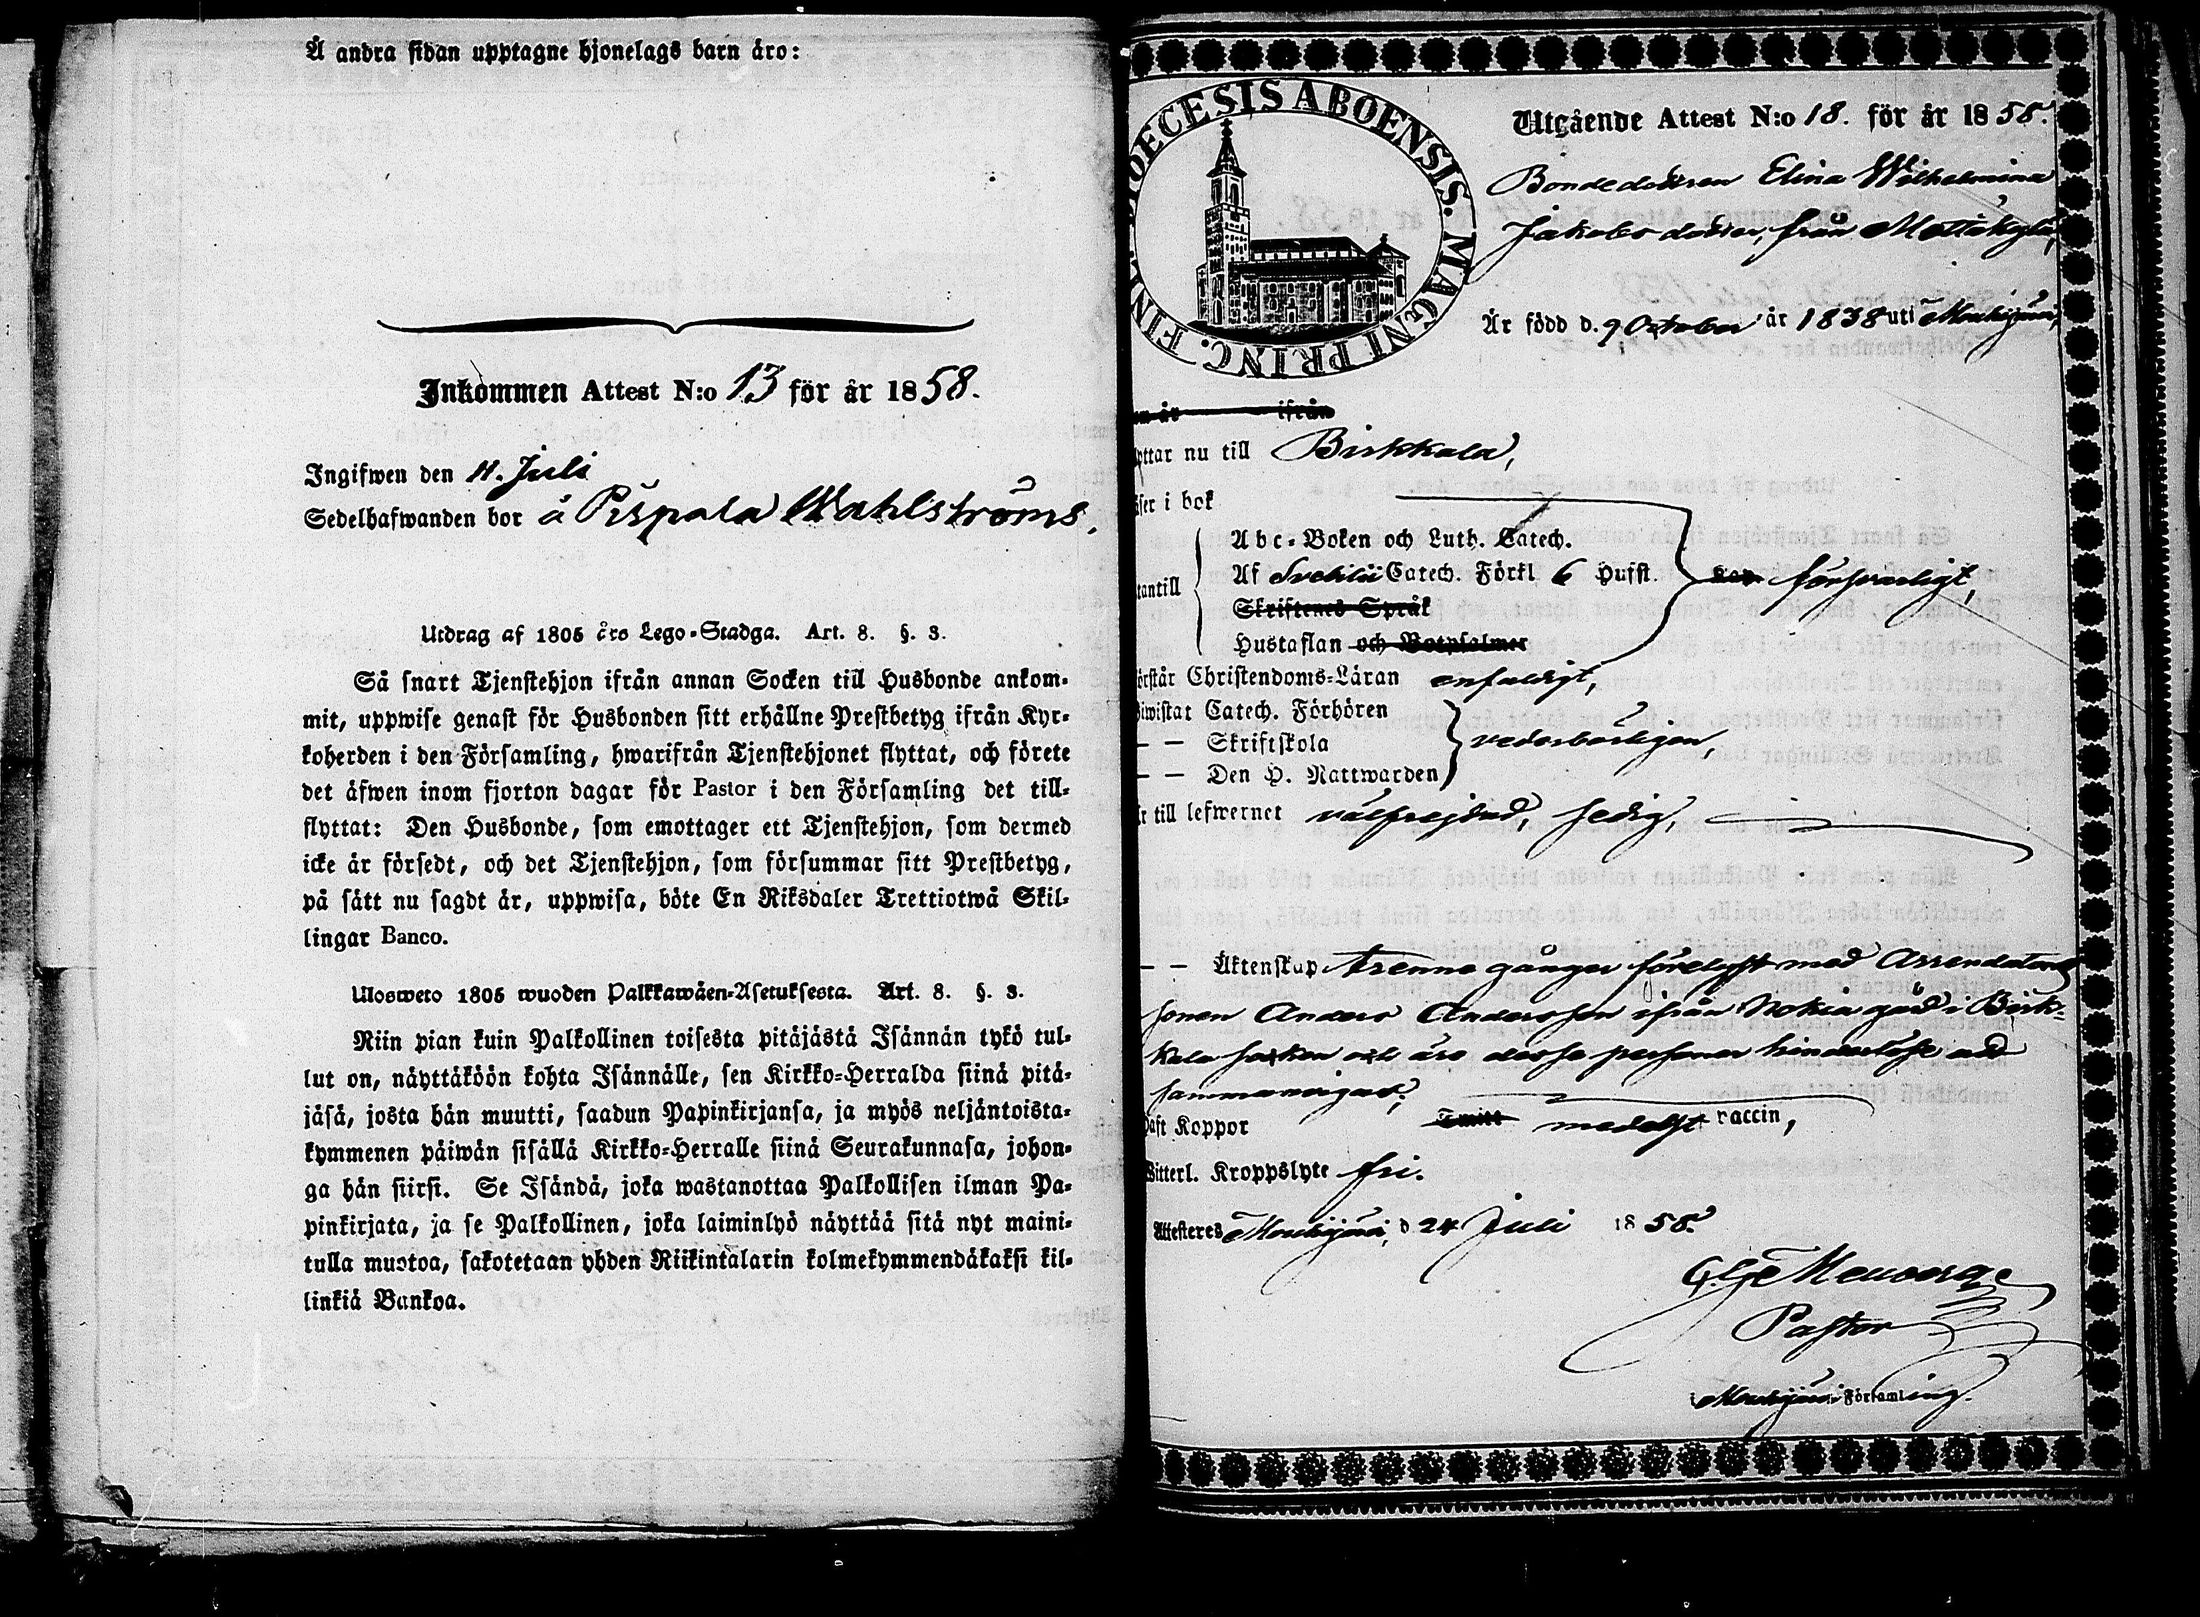 Å andra sidan upptagne hjonelags barn äro:
Inkommen Attest N:o 13 för år 1858.
Ingifwen den 11. Juli
Sedelhafwanden bor å Pispala Wahlströms,
Utdrag af 1805 års Lego-Stadga. Art. 8. §. 3.
Så snart Tjenstehjon ifrån annan Socken till Husbonde ankom-
mit, uppwise genast för Husbonden sitt erhållne Prestbetyg ifrån Kyr-
koherden i den Församling, hwarifrån Tjenstehjonet flyttat, och förete
det äfwen inom fjorton dagar för Pastor i den Församling det till-
flyttat: Den Husbonde, som emottager ett Tjenstehjon, som dermed
icke är försedt, och det Tjenstehjon, som försummar sitt Prestbetyg,
på sätt nu sagdt är, uppwisa, böte En Riksdaler Trettiotwå Skil-
lingar Banco.
Ulosweto 1805 wuoden Palkkawäen-Asetuksesta. Art. 8. §. 3.
Niin pian kuin Palkollinen toisesta pitäjästä Isännän tykö tul-
lut on, näyttäköön kohta Isännälle, sen Kirkko-Herralda siinä pitä-
jäsä, josta hän muutti, saadun Papinkirjansa, ja myös neljäntoista-
kymmenen päiwän sisällä Kirkko-Herralle siinä Seurakunnasa, johon-
ga hän siirsi. Se Isändä, joka wastanottaa Palkollisen ilman Pa-
pinkirjata, ja se Palkollinen, joka laiminlyö näyttää sitä nyt maini-
tulla muotoa, sakotetaan yhden Riikintalarin kolmekymmendäkaksi kil-
linkiä Bankoa.
DIOECESIS ABOENSIS. MAGNI PRINC. FINL.
Utgående Attest N:o 18. för år 1858.
Bondedottren Elina Wilhelmina
Jakobsdotter, från Mattikylä,
Är född d. 9 October år 1838 uti Mouhijärvi,
ifrån
yttar nu till Birkkala,
äser i bok
Abc-Boken och Luth. Catech.
Af Svebilii Catech. Förkl 6 Hufst. försvarligt,
tantill
Skriftenes Språk
Hustaflan och Botpsalmer
örstår Christendoms-Läran enfaldigt,
iwistat Catech. Förhören
— — Skriftskola vederbörligen,
— — Den H. Nattwarden
är till lefwernet välfrejdad, ledig,
— — Äktenskap trenne gånger förelyst med Arrendators
sonen Anders Andersson ifrån Nokia gård i Birk-
kala socken och äro desse personer hinderlöse att
sammanvigas;
aft Koppor medelst vaccin,
itterl. Kroppslyte fri.
Attesteres Mouhijärvi, d 24 Juli 1858.
Pastor
i Mouhijärvi Församling.